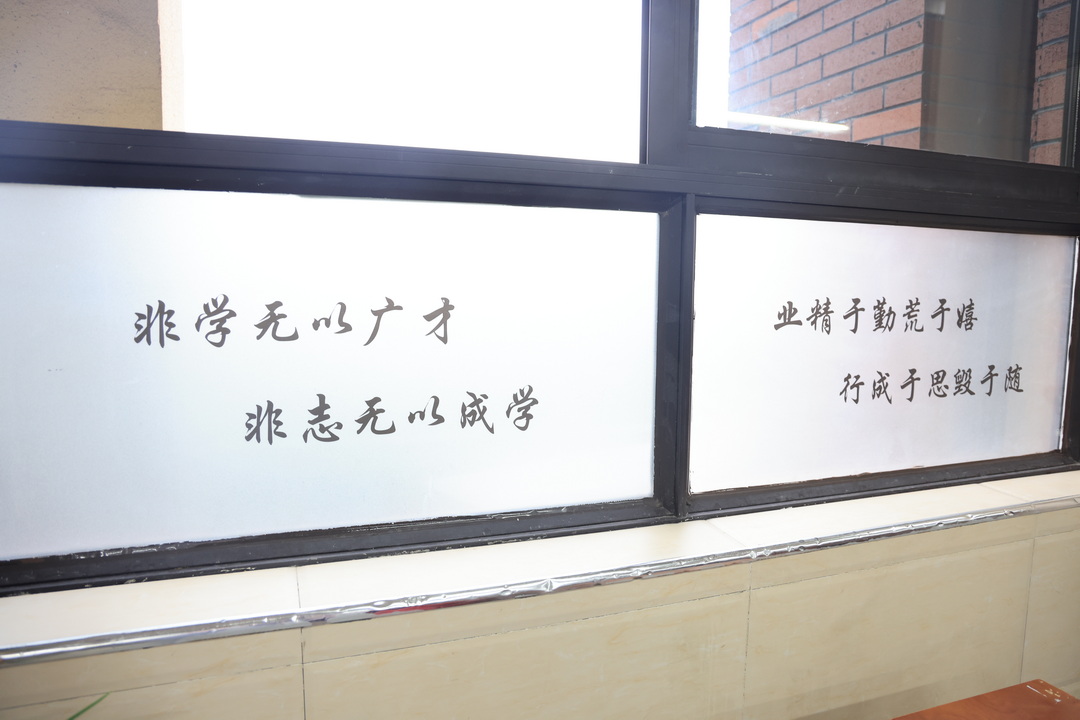 非学无以广才
非志无以成学
业精于勤荒于嬉
行成于思毁于随